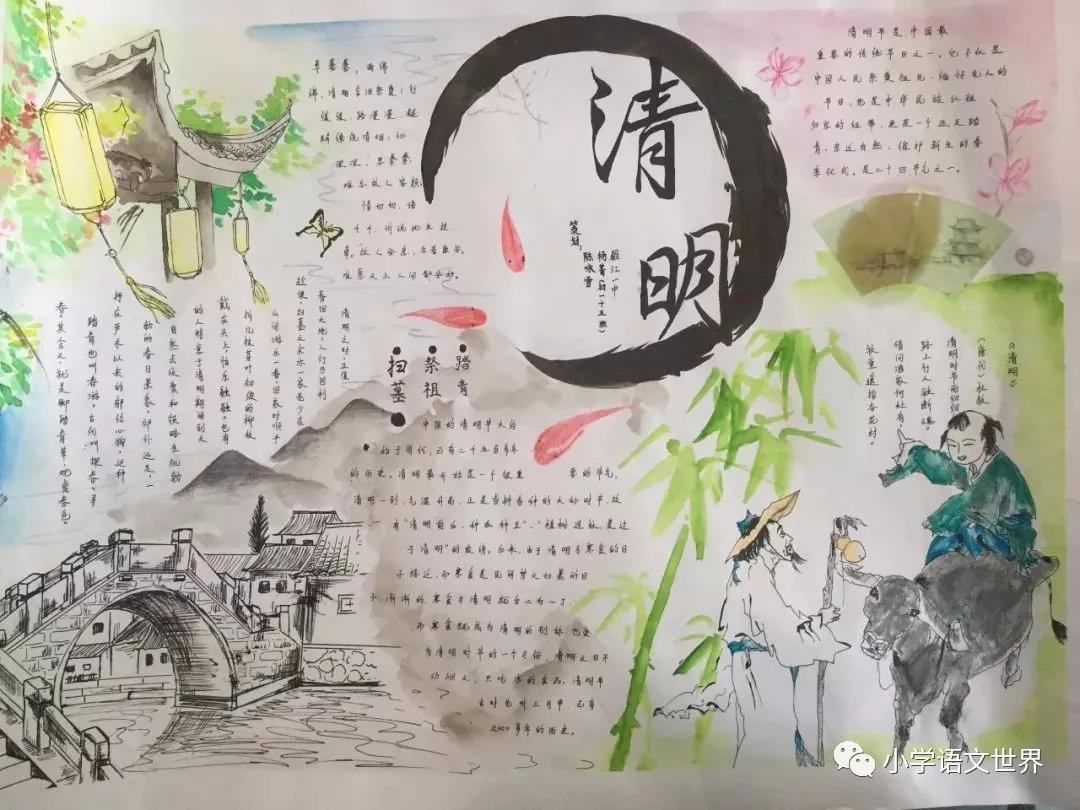 清明
策划：
雁江一中
草萋萋，雨佛
佛，清明
缓缓，路漫漫，
难忘故人容颜
情切切，语
千千，诉说地
草。故人安息，
唯愿天上人间都安好。
清明节是中国最
重要的传统节日之一。它不仅是
中国人民祭奠祖先、缅怀先人的
节日，也是中华民族认祖
归宗的纽带，更是一个远足踏
青、亲近自然、催护新生的春
季仪式。是二十四节气之一。
清明之时，正值
春回大地，人们乃因利
趁便，扫墓之余亦一家老少在
山间游乐一番，回家时顺手
折几枝芽叶初绽的柳枝
戴在头上，怡乐融融。也有
的人特意于清明期间到大
自然去欣赏和领略生机勃
勃的春日景象，郊外远足，一
抒在严冬以来的郁结心胸，这种
踏青也叫春游，古代叫探春、寻
春。其含义，就是脚踏青草，观赏春色。
扫墓
祭祖
踏青
中国的清明节大约
始于周代，已有二千五百多年
的历史。清明最开始是一个很重要的节气，
清明一到，气温升高，正是春耕春种的大好时节，故
有“清明前后，种瓜种豆”、“植树造林，莫过
于清明”的农谚。后来，由于清明与寒食的日
子接近，而寒食是民间禁火扫墓的日
子，渐渐的，寒食与清明就合二为一了，
而寒食既成为清明的别称，也变
为清明时节的一个习俗，清明之日不
动烟火，只吃凉的食品。清明节
古时也叫三月节，已有
2000多年的历史。
《清明》
（唐代）杜牧
清明时节雨纷纷，
路上行人欲断魂。
借问酒家何处有？
牧童遥指杏花村。
小学语文世界